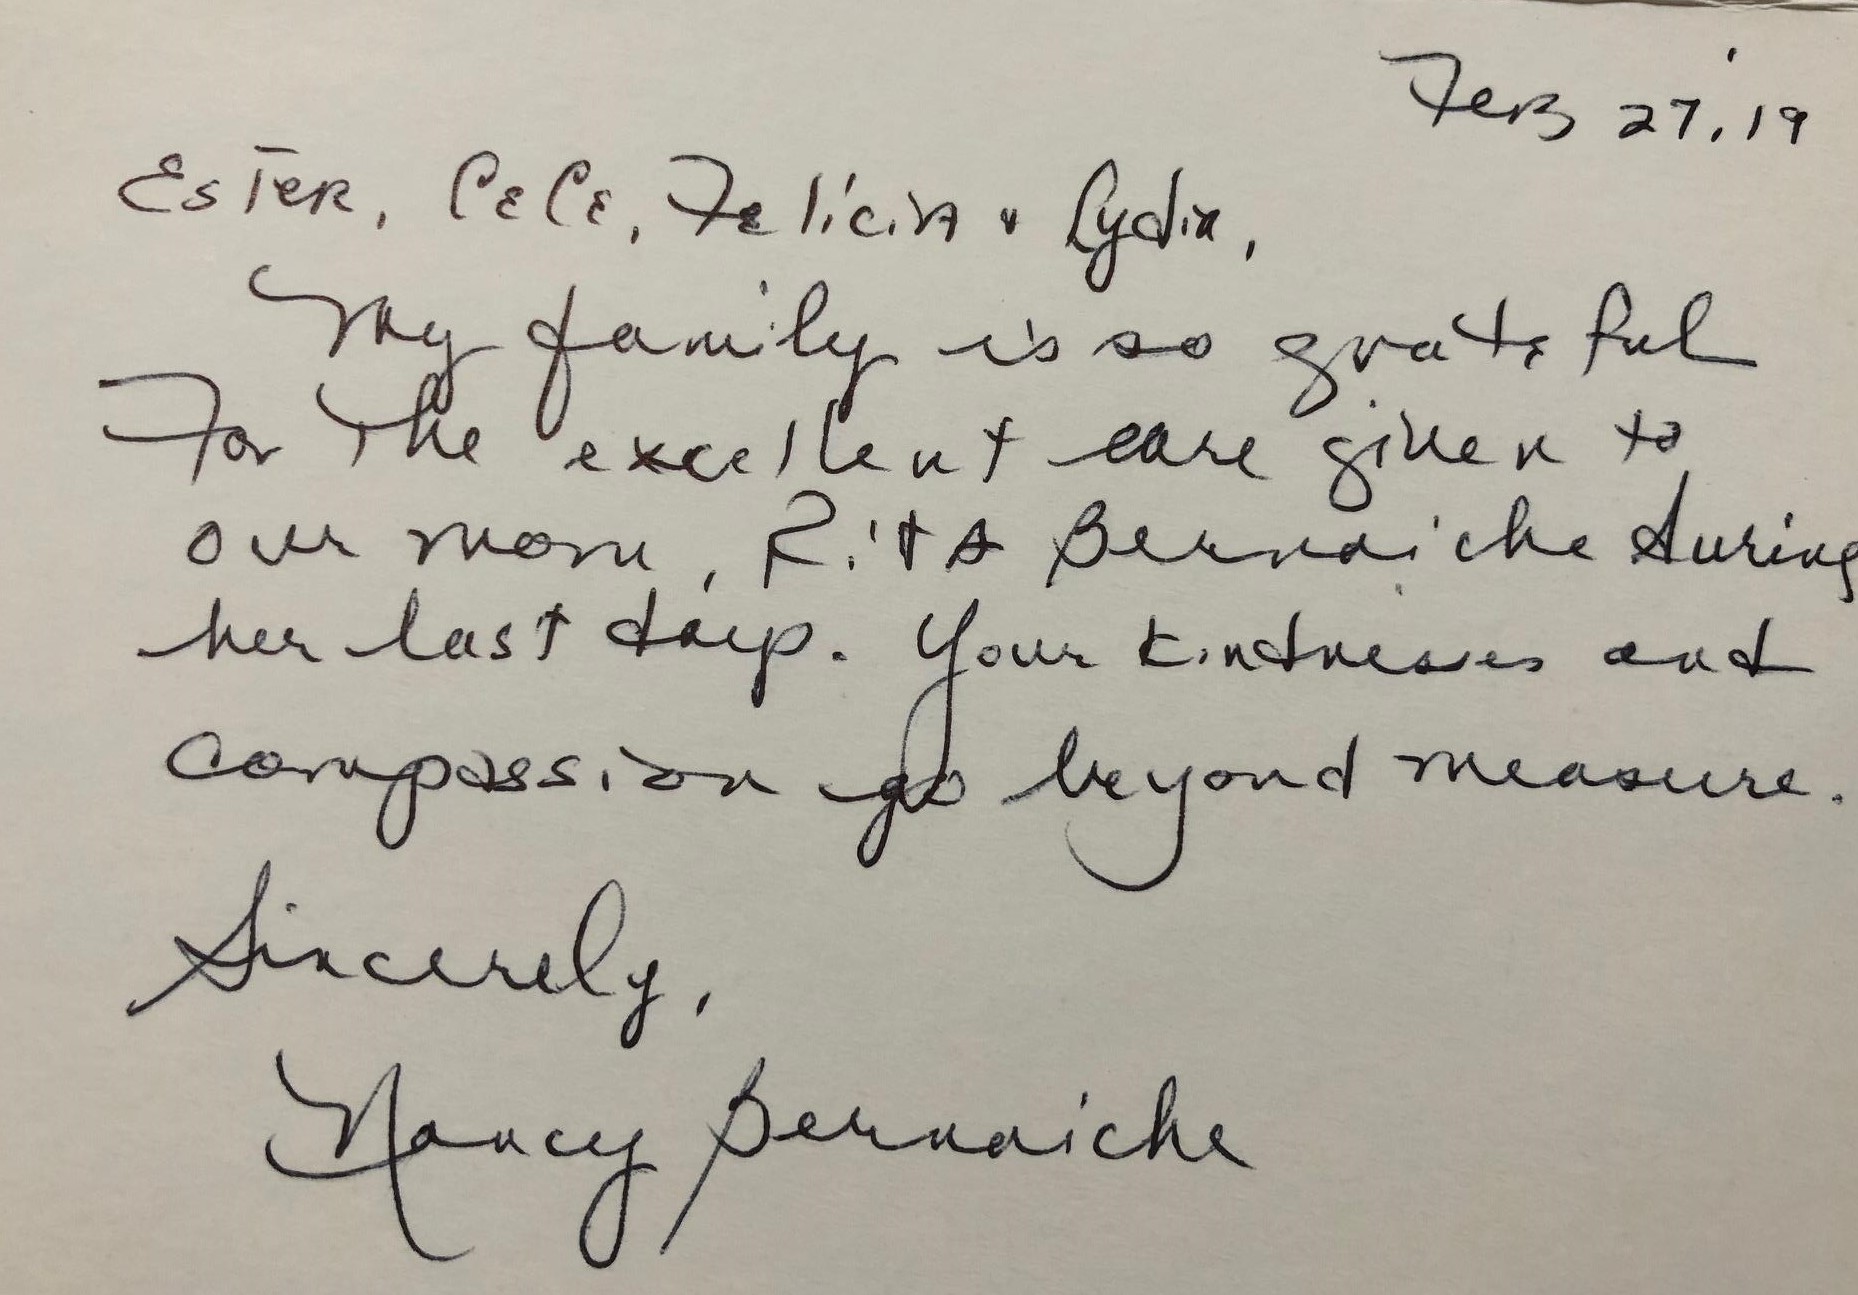 Feb 27, 19
Ester, CeCe, Felicia & Lydia,
My family is so grateful
For The excellent care given to
our mom, Rita Bernaiche during
her last days. Your kindnesses and
compassion go beyond measure.
Sincerely,
Nancy Bernaiche